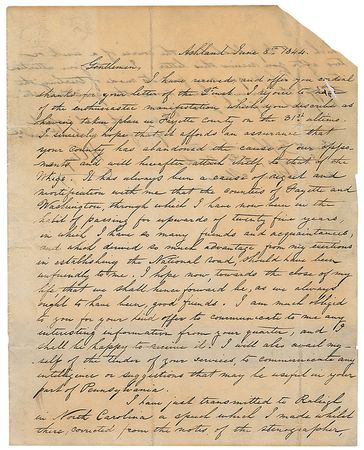 Ashland June 3d 1844.
Gentlemen,
I have received and offer you cordial
thanks for your letter of the 1st inst. I rejoice to hear
of the enthusiastic manifestation which you describe as
having taken place in Fayette county on the 31st ultimo.
I sincerely hope that it affords an assurance that
your County has abandoned the cause of our oppo-
nents, and will hereafter attach itself to that of the
Whigs. It has always been a cause of regret and
mortification with me that the counties of Fayette and
Washington through which I have now been in the
habit of passing for upwards of twenty five years,
in which I have so many friends and acquaintances,
and which derived so much advantage from my exertions
in establishing the National Road, should have been
unfriendly to me. I hope now, towards the close of my
life that we shall henceforward be, as we always
ought to have been, good friends. I am much obliged
to you for your kind offer to communicate to me any
interesting information from your quarter, and I
shall be happy to receive it. I will also avail my-
self of the tender of your services, to communicate any
intelligence or suggestions that may be useful in your
part of Pennsylvania.
I have just transmitted to Raleigh
in North Carolina a speech which I made whilst
there, corrected from the notes of the stenographer,